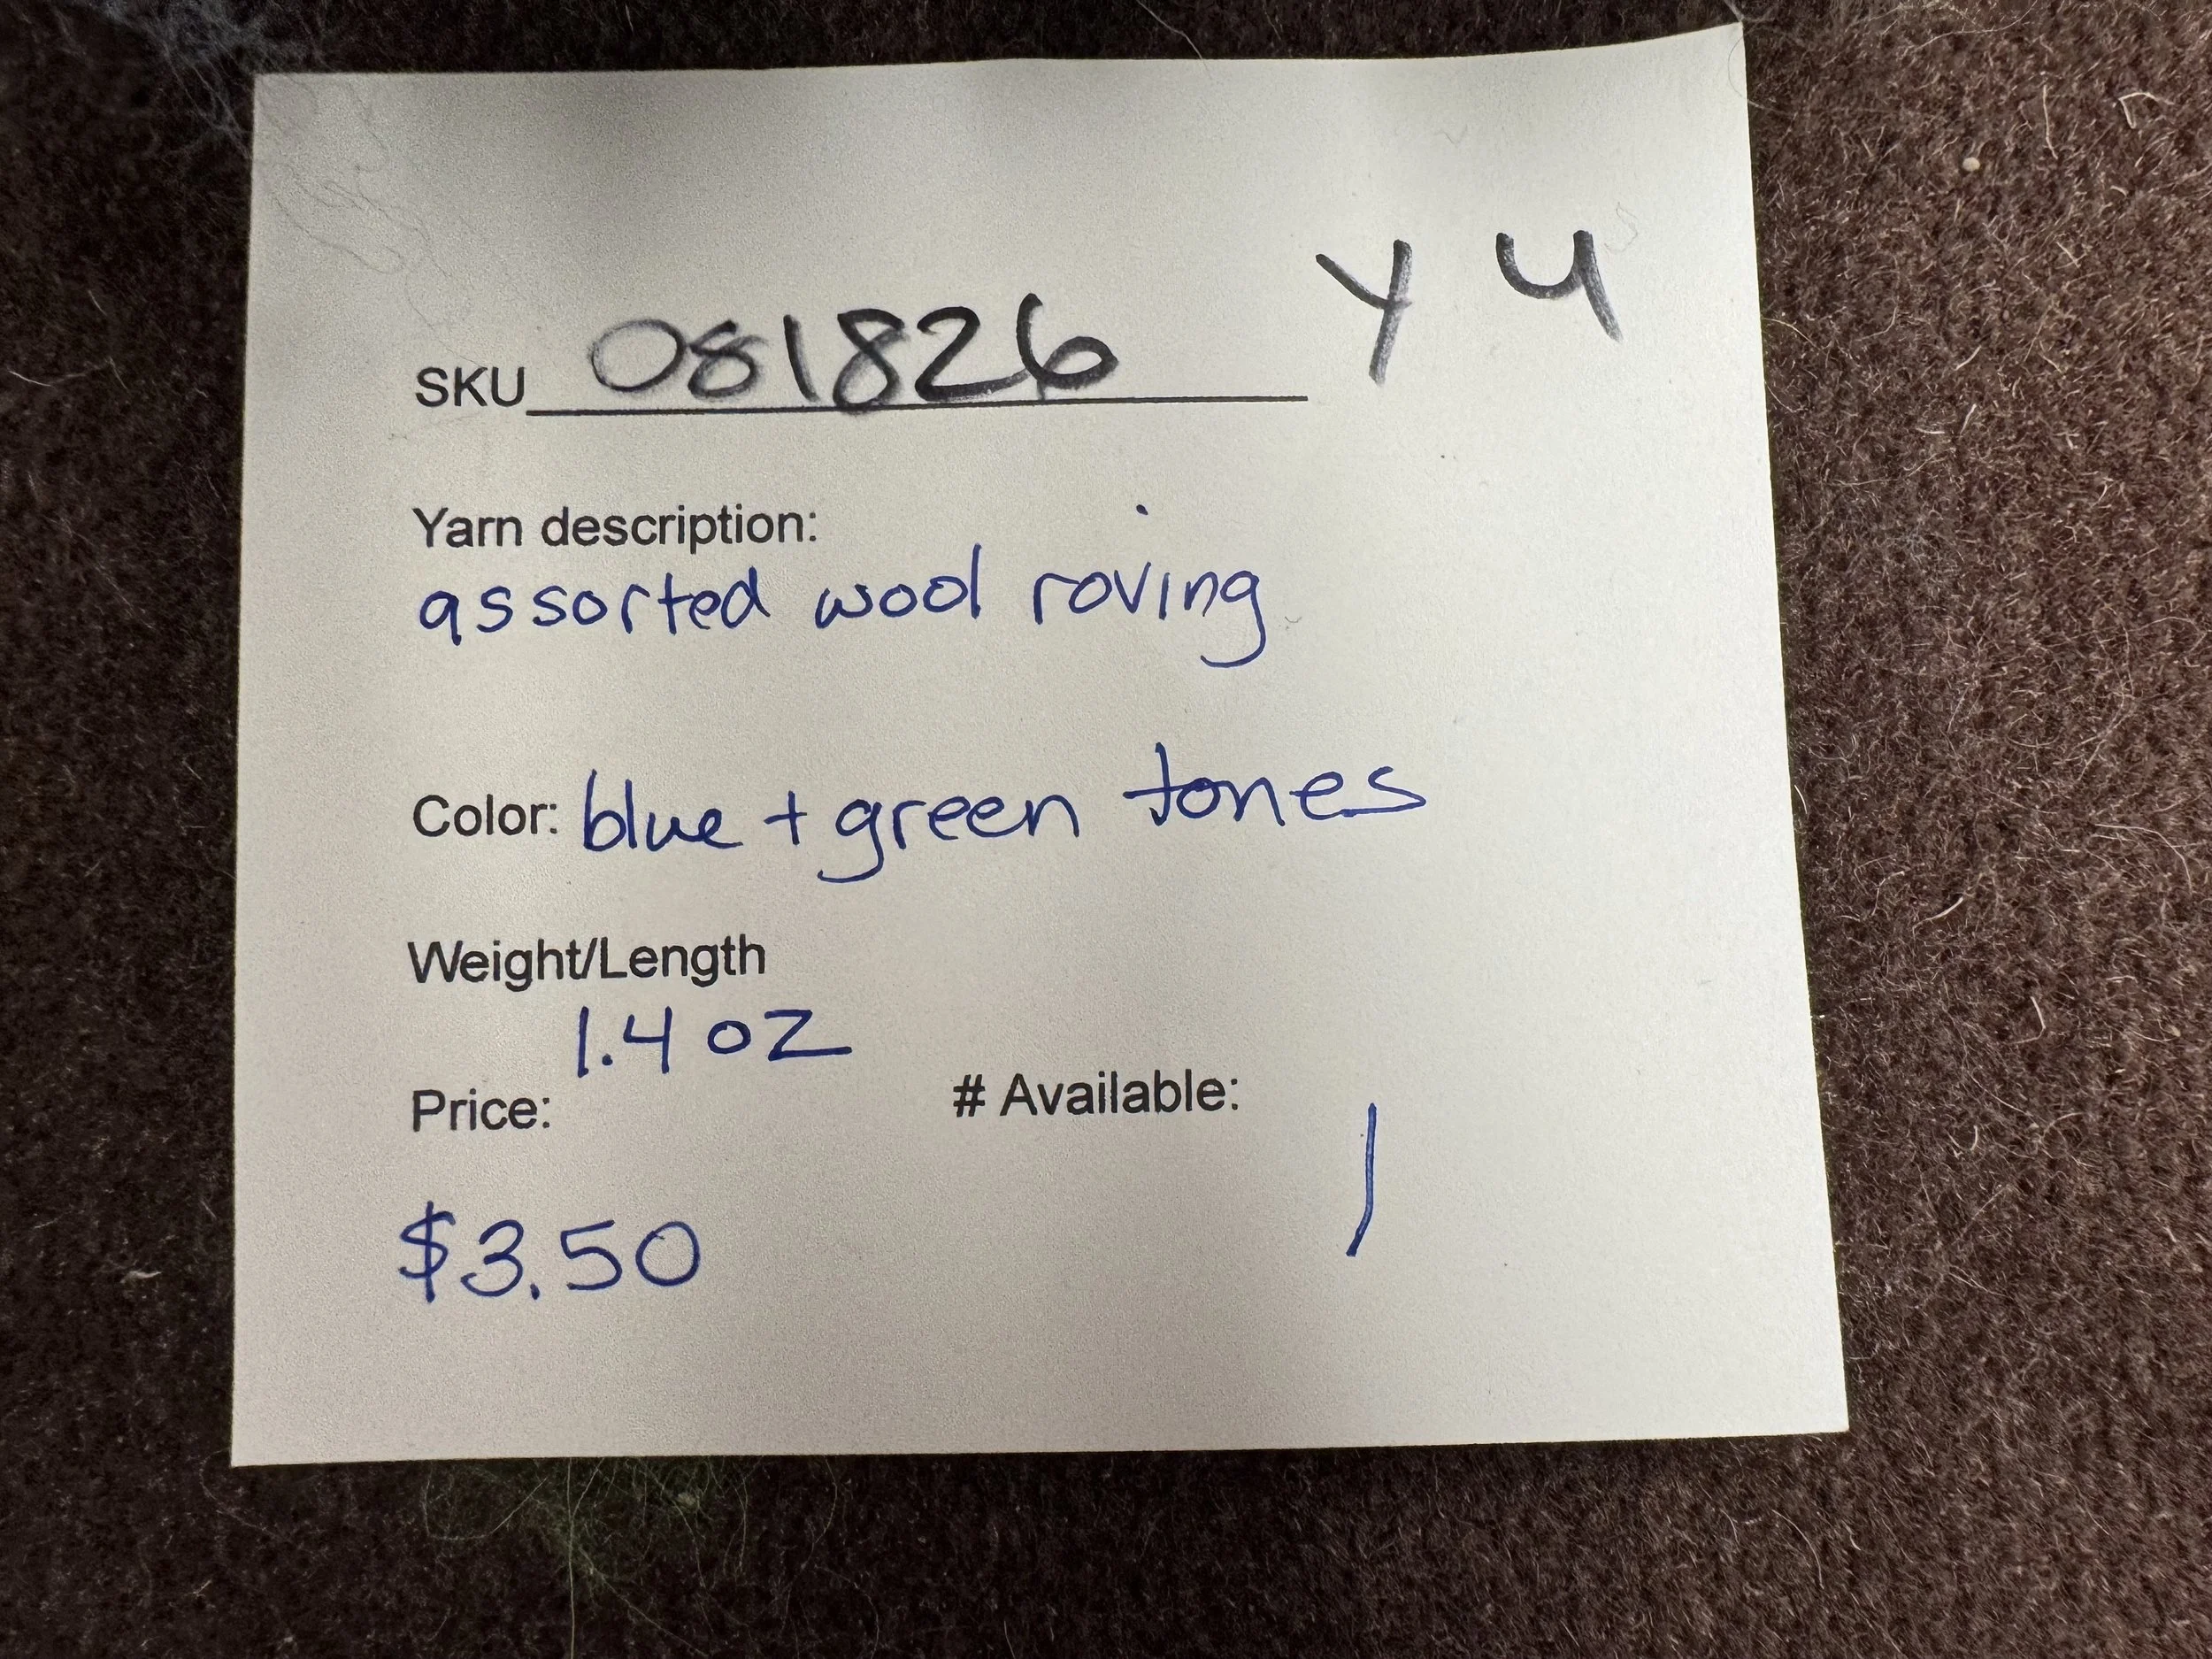 Y 4
SKU 081826
Yarn description:
assorted wool roving
Color: blue + green tones
Weight/Length
1.4 oz
Price: # Available:
$3.50 1